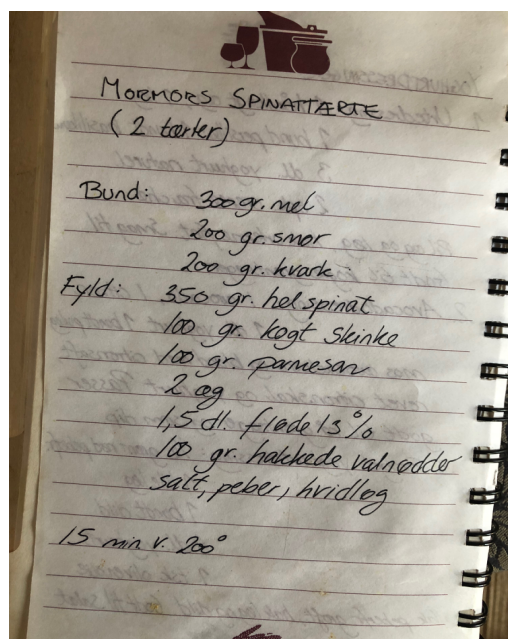 MORMORS SPINATTÆRTE
(2 tærter)
Bund: 300 gr. mel
200 gr. smør
200 gr. kvark
Fyld: 350 gr. hel spinat
100 gr. kogt skinke
100 gr. parmesan
2 æg
1,5 dl. fløde 13%
100 gr. hakkede valnødder
salt, peber, hvidløg
15 min v. 200°